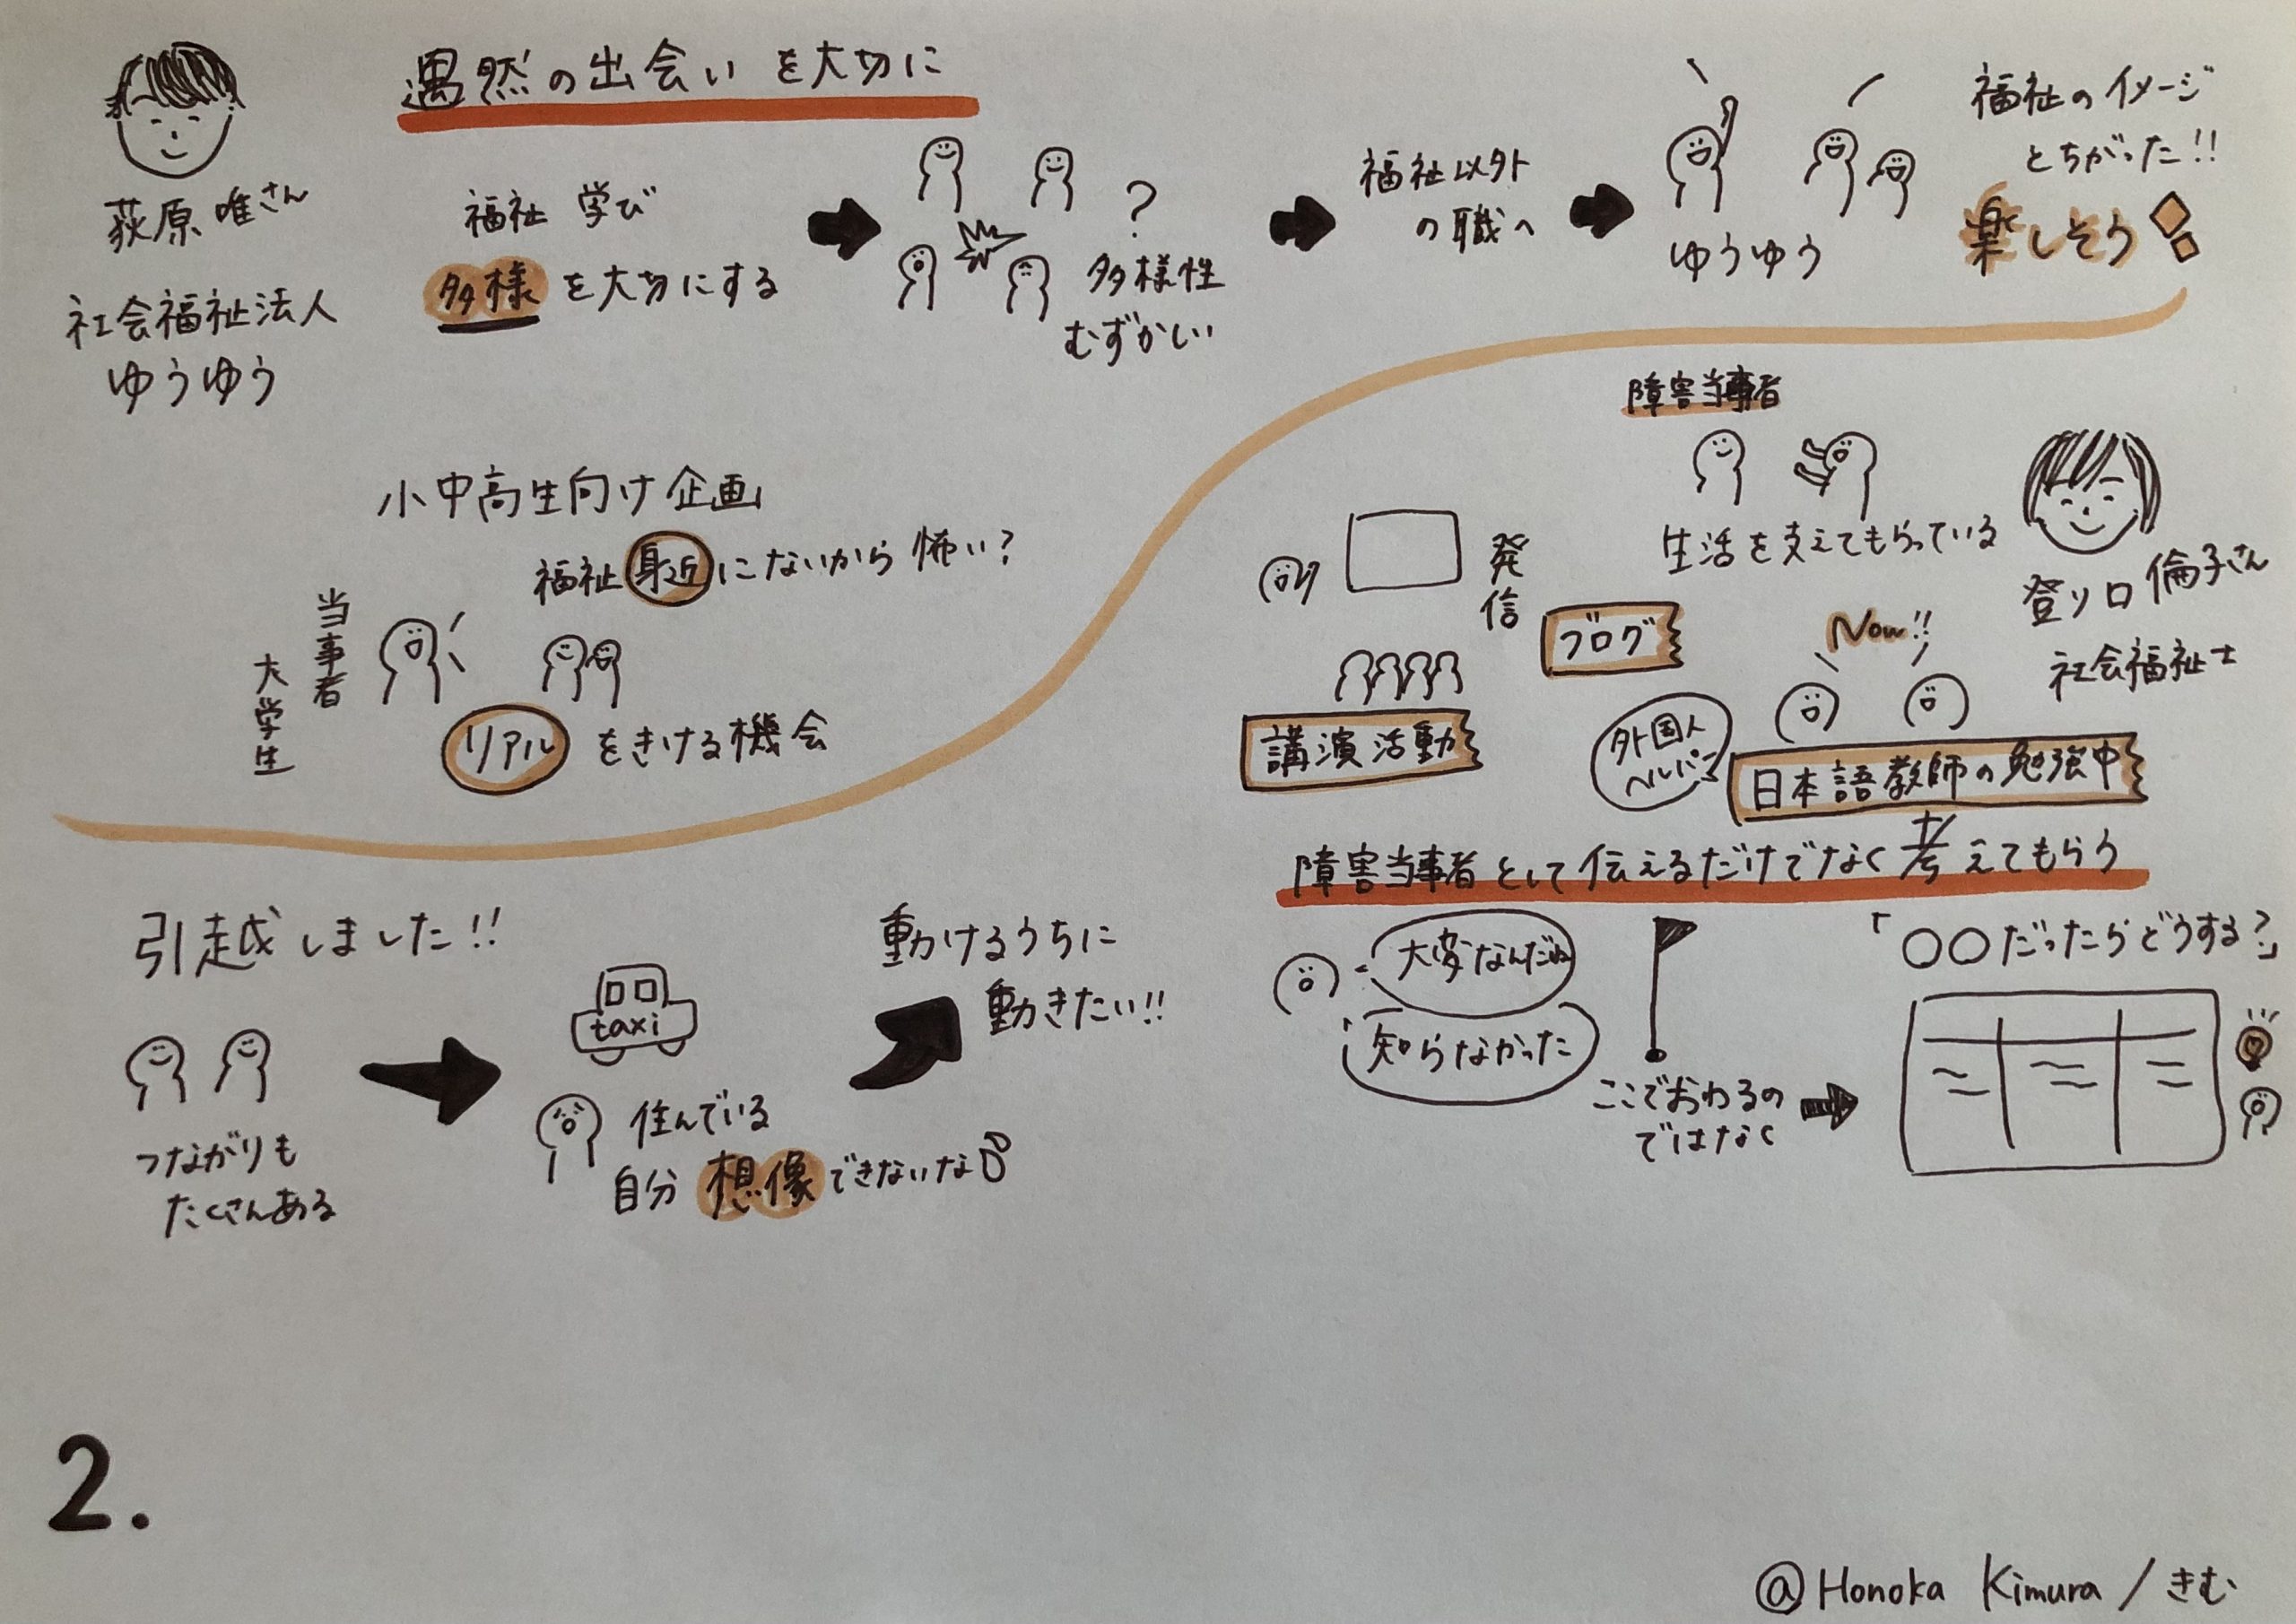 偶然の出会いを大切に
荻原 唯さん
社会福祉法人
ゆうゆう
福祉 学び
多様を大切にする
?
多様性
むずかしい
福祉以外
の職へ
ゆうゆう
福祉のイメージ
とちがった!!
楽しそう
小中高生向け企画
福祉身近にないから怖い?
当事者
大学生
リアルをきける機会
障害当事者
生活を支えてもらっている
登り口 倫子さん
社会福祉士
発信
ブログ
講演活動
Now!!
外国人
ヘルパー
日本語教師の勉強中
障害当事者として伝えるだけでなく考えてもらう
大変なんだね
知らなかった
ここでおわるの
ではなく
「〇〇だったらどうする?」
引越しました!!
つながりも
たくさんある
taxi
住んでいる
自分 想像できないな
動けるうちに
動きたい!!
2.
@Honoka Kimura/きむ